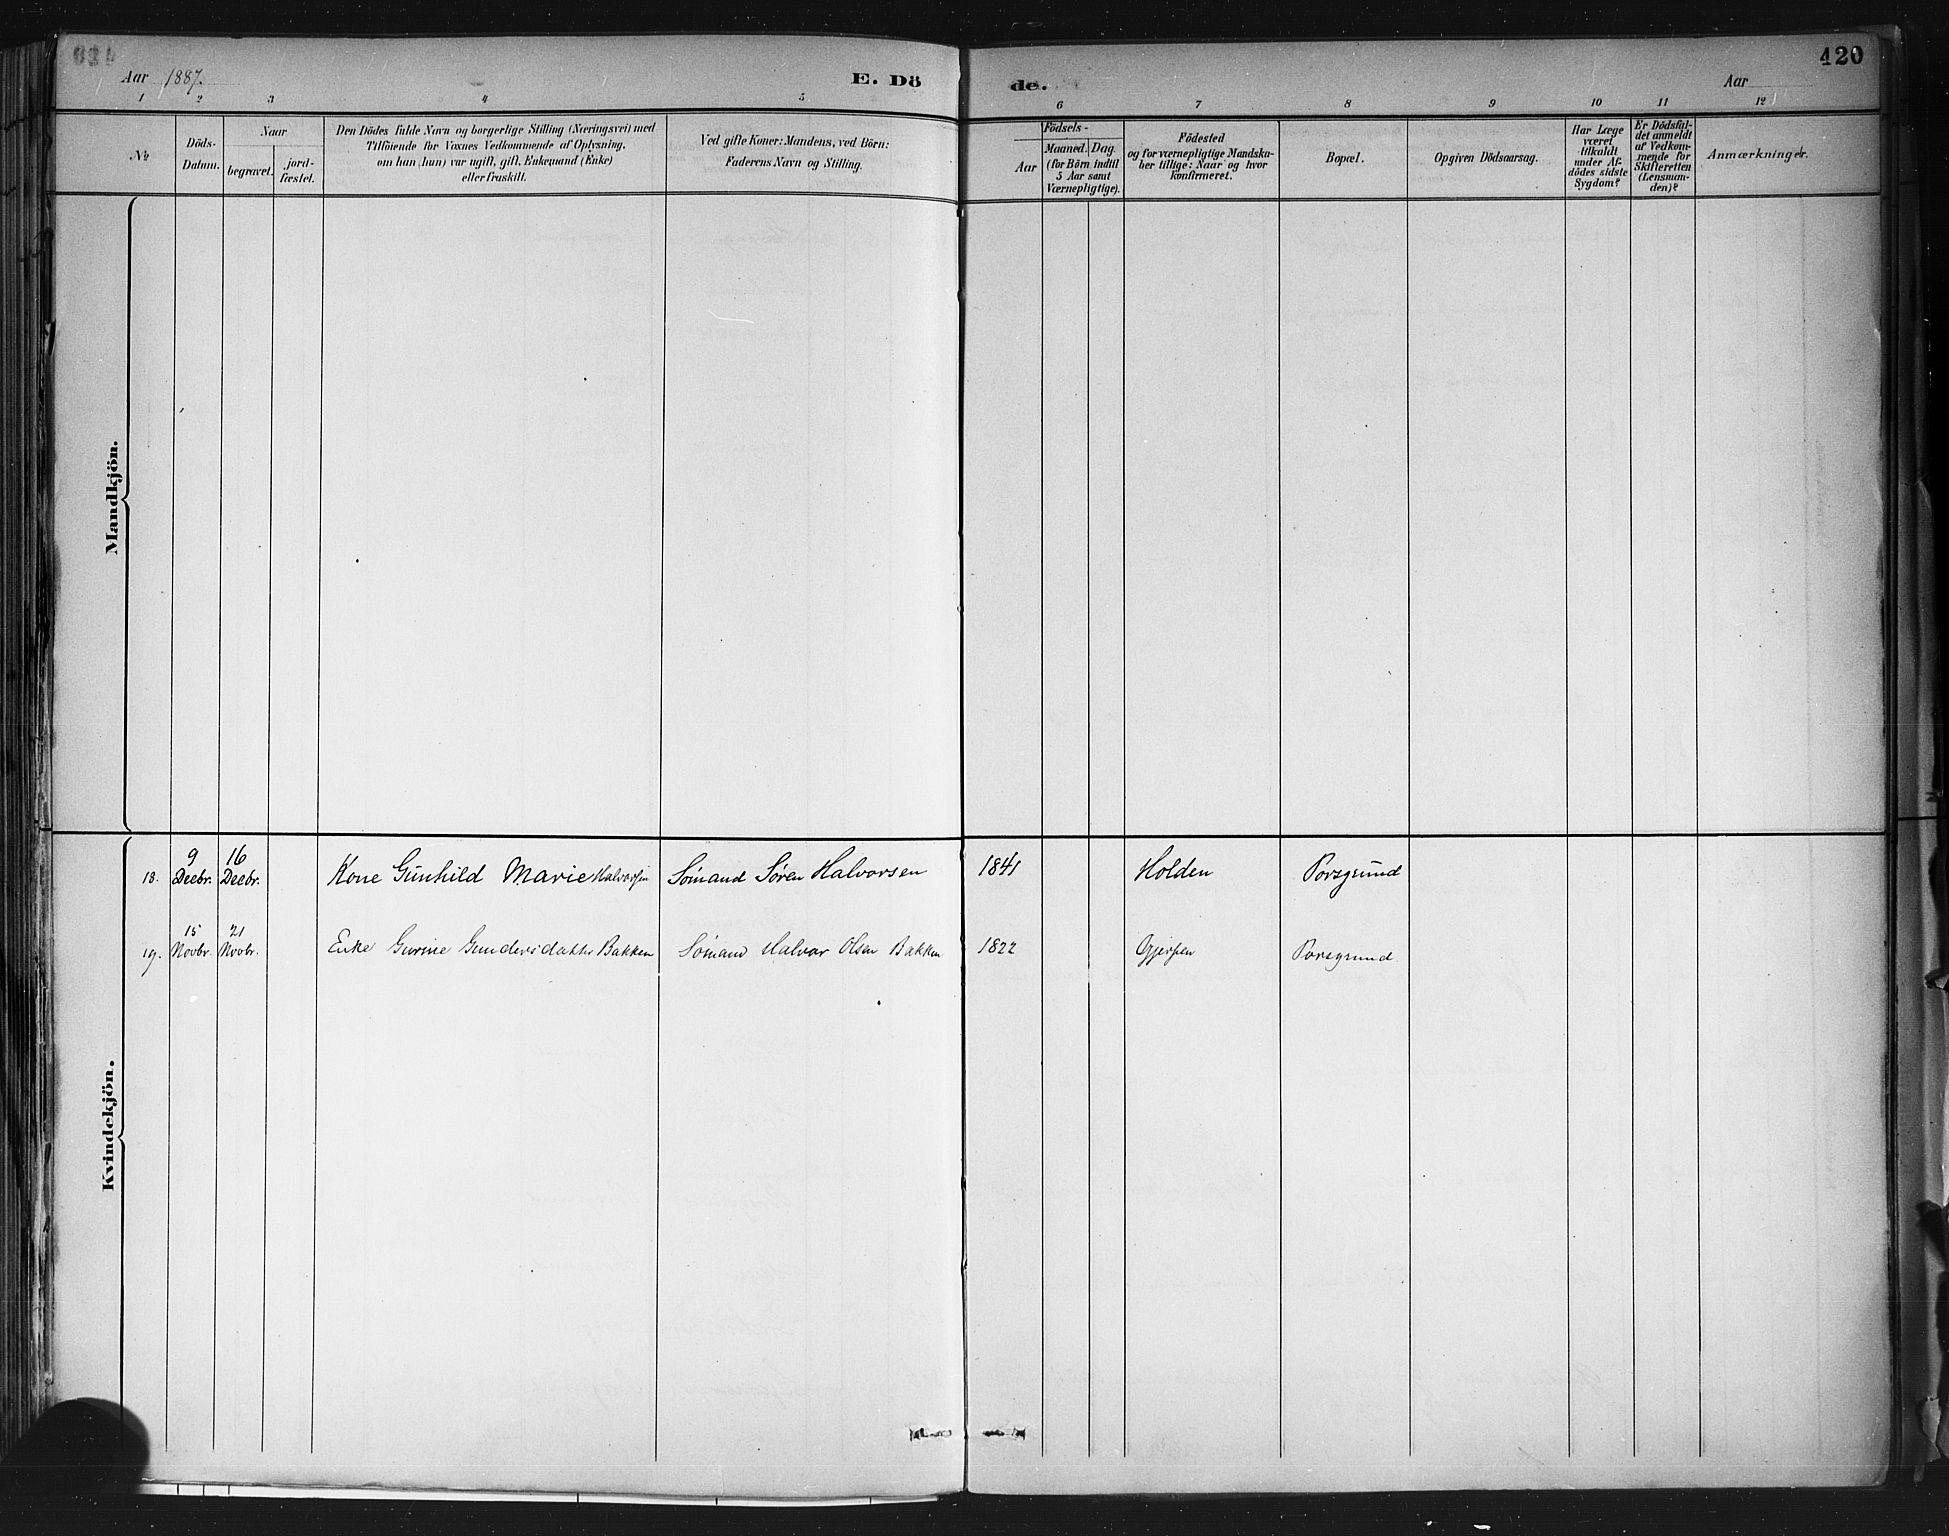 420
Aar 1887.
E. Dö
de.
Aar
1 2 3 4 5 6 7 8 9 10 11 12
No
Döds-
Datum.
Naar
begravet.
jord-
fæstet.
Den Dödes fulde Navn og borgerlige Stilling (Næringsvei) med
Tilföiende for Voxnes Vedkommende af Oplysning,
om han (hun) var ugift, gift, Enkemand (Enke)
eller fraskilt.
Ved gifte Koner: Mandens, ved Börn:
Faderens Navn og Stilling.
Födsels-
Aar
Maaned. Dag.
(for Börn indtil
5 Aar samt
Værnepligtige).
Födested
og for værnepligtige Mandska-
ber tillige: Naar og hvor
konfirmeret.
Bopæl.
Opgiven Dödsaarsag.
Har Læge
været
tilkaldt
under Af-
dödes sidste
Sygdom?
Er Dödsfal-
det anmeldt
af Vedkom-
mende for
Skifteretten
(Lensman-
den)?
Anmærkninger.
Mandkjön.
Kvindekjön.
9 16
18. Decbr. Decbr. Kone Gunhild Marie Halvorsen Sömand Søren Halvorsen 1841 Holden Porsgrund
15 21
19. Novbr. Novbr. Enke Gurine Gundersdatter Bakken Sömand Halvor Olsen Bakken 1822 Gjerpen Porsgrund